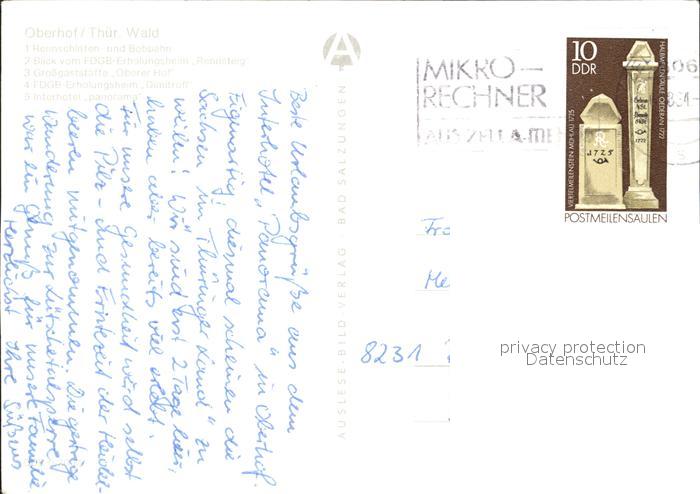 Oberhof / Thür. Wald
1 Rennschlitten- und Bobbahn
2 Blick vom FDGB-Erholungsheim „Rennsteig“
3 Großgaststätte „Oberer Hof“
4 FDGB-Erholungsheim
5 Interhotel „panorama“
Beste Urlaubsgrüße aus dem
Interhotel „Panorama“ in Oberhof.
Eigenartig, diesmal scheinen die
Sachsen im „Thüringer Land“ zu
weilen! Wir sind erst 2 Tage hier,
haben aber bereits viel erlebt.
Für unsere Gesundheit wird selbst
die Pilz- und Erntezeit der Heidel-
beeren mitgenommen. Die gestrige
Wanderung zur Lütschetalsperre
war ein Genuß für unsere Familie.
Herzlichst Ihre
AUSLESE-BILD-VERLAG · BAD SALZUNGEN
A
MIKRO-
RECHNER
AUS ZELLA-ME
10
DDR
VIERTELMEILENSTEIN MÜHLAU 1725
HALBMEILENSÄULE OEDERAN 1722
1725
1722
POSTMEILENSÄULEN
Me
8231
privacy protection
Datenschutz